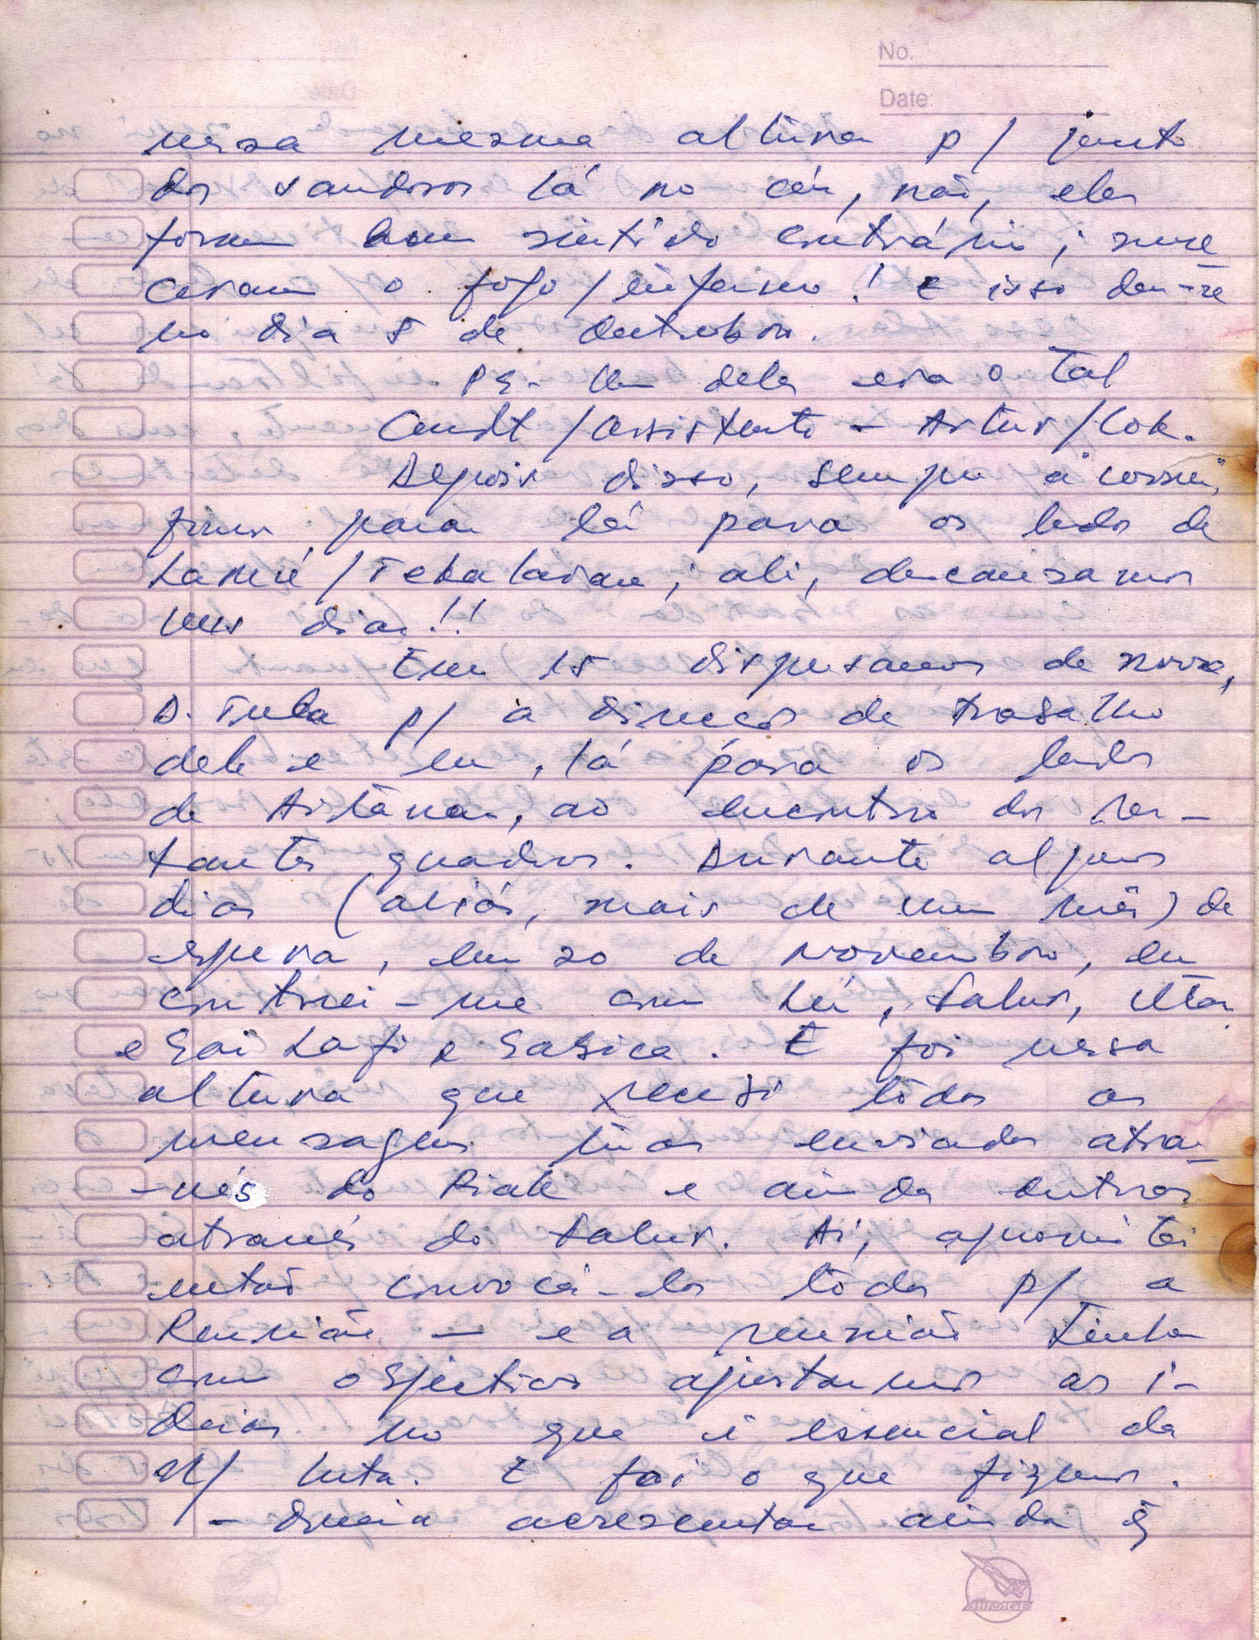 No.
Date
nessa mesma altura p/ junto
dos saudosos lá no céu, não, eles
foram bom sentido contrário; mere
ceram o fogo/inferno! E isso deu-se
no dia 5 de Outubro.
PS- Um deles era o tal
Cmdt/assistente - Artur/Lok.
Depois disso, sempre a correr,
fomos para lá para os lados de
Laruú/Tekalaran; ali, descansamos
uns dias!!
Em 15 dispersamos de novo,
D. Tula p/ a direcção de trabalho
dele e eu, lá para os lados
de Aitana, ao encontro dos res-
tantes quadros. Durante alguns
dias (aliás, mais de um mês) de
espera, em 20 de Novembro, en
contrei-me com Lú, Sabur,
e Sai Lafi e Sabica. E foi nessa
altura que recebi todas as
mensagens tuas enviadas atra-
-vés do Riak e ainda outras
através do Sabur. Aí, aproveitei
então convocá-los todos p/ a
Reunião — e a reunião tinha
como objectivo ajustarmos as i-
deias no que é essencial da
N/ luta. E foi o que fizemos.
- Queria acrescentar ainda q̃